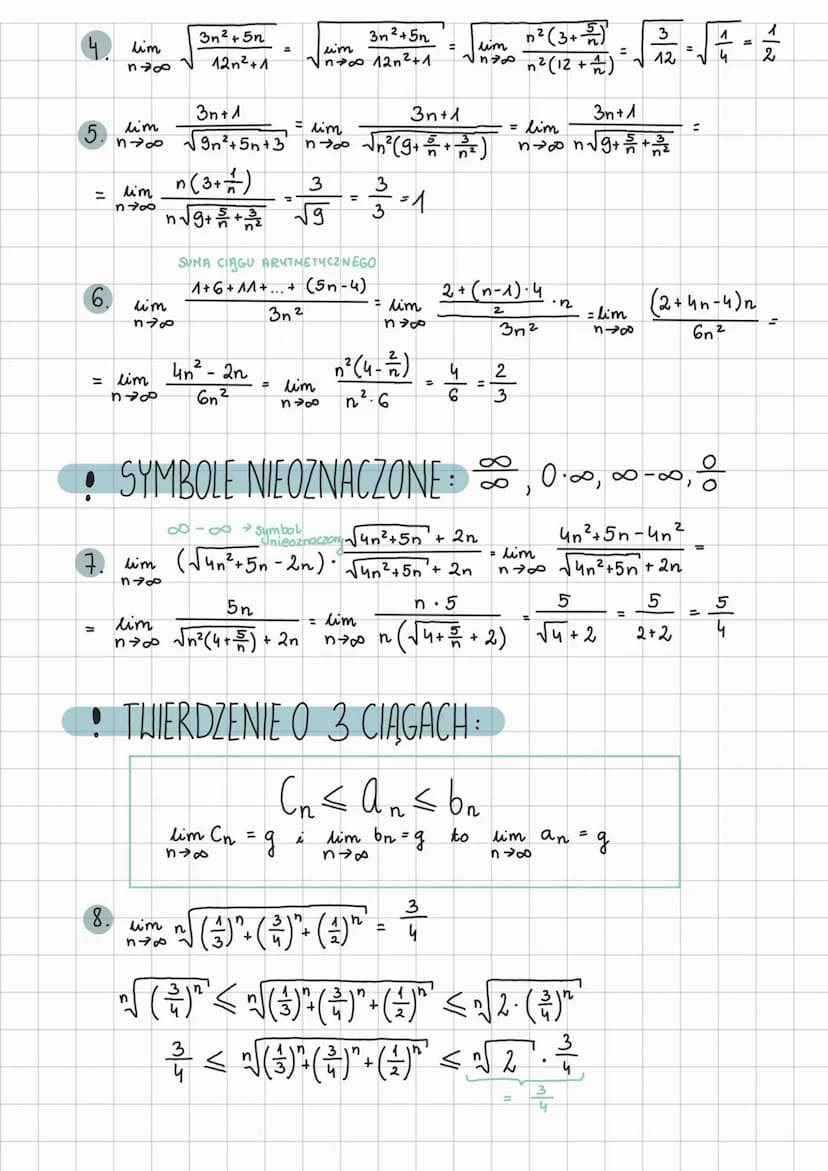 4. lim n→∞ √((3n²+5n)/(12n²+1)) = √(lim n→∞ (3n²+5n)/(12n²+1)) = √(lim n→∞ n²(3+5/n)/n²(12+1/n)) = √(3/12) = √(1/4) = 1/2
5. lim n→∞ (3n+1)/√(9n²+5n+3) = lim n→∞ (3n+1)/√(n²(9+5/n+3/n²)) = lim n→∞ (3n+1)/(n√(9+5/n+3/n²)) =
= lim n→∞ n(3+1/n)/(n√(9+5/n+3/n²)) = 3/√9 = 3/3 = 1
SUMA CIĄGU ARYTMETYCZNEGO
6. lim n→∞ (1+6+11+...+(5n-4))/3n² = lim n→∞ ((2+(n-1)·4)/2 · n)/3n² = lim n→∞ (2+4n-4)n/6n² =
= lim n→∞ (4n²-2n)/6n² = lim n→∞ n²(4-2/n)/(n²·6) = 4/6 = 2/3
! SYMBOLE NIEOZNACZONE: ∞/∞, 0·∞, ∞-∞, 0/0
∞-∞ → symbol nieoznaczony
7. lim n→∞ (√(4n²+5n) - 2n) · (√(4n²+5n) + 2n)/(√(4n²+5n) + 2n) = lim n→∞ (4n²+5n-4n²)/(√(4n²+5n) + 2n) =
= lim n→∞ 5n/(√(n²(4+5/n)) + 2n) = lim n→∞ n·5/(n(√(4+5/n) + 2)) = 5/(√4+2) = 5/(2+2) = 5/4
! TWIERDZENIE O 3 CIĄGACH:
Cn ⩽ an ⩽ bn
lim n→∞ Cn = g i lim n→∞ bn = g to lim n→∞ an = g
8. lim n→∞ ⁿ√((1/3)ⁿ+(3/4)ⁿ+(1/2)ⁿ) = 3/4
ⁿ√((3/4)ⁿ) ⩽ ⁿ√((1/3)ⁿ+(3/4)ⁿ+(1/2)ⁿ) ⩽ ⁿ√(2·(3/4)ⁿ)
3/4 ⩽ ⁿ√((1/3)ⁿ+(3/4)ⁿ+(1/2)ⁿ) ⩽ ⁿ√2 · 3/4
= 3/4